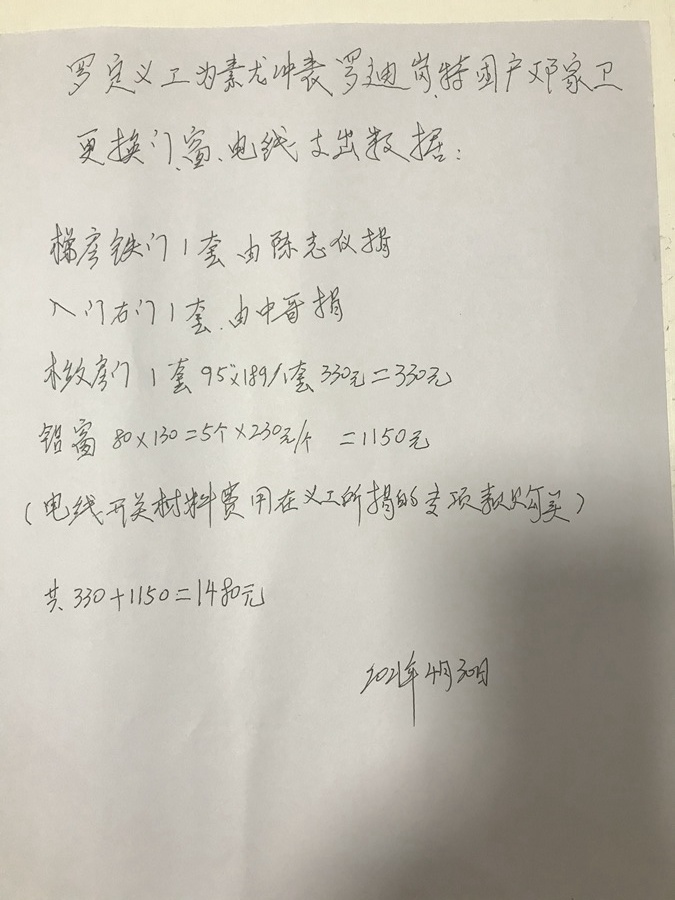 罗定义工为素龙冲表罗迪岗特困户邓家卫
更换门、窗、电线支出数据:
梯房铁门1套由陈志仪捐
入门右门1套.由中哥捐
木纹房门1套95×189/1套330元=330元
铝窗80×130=5个×230元/个=1150元
(电线开关材料费用在义工所捐的专项款购买)
共330+1150=1480元
2021年4月30日